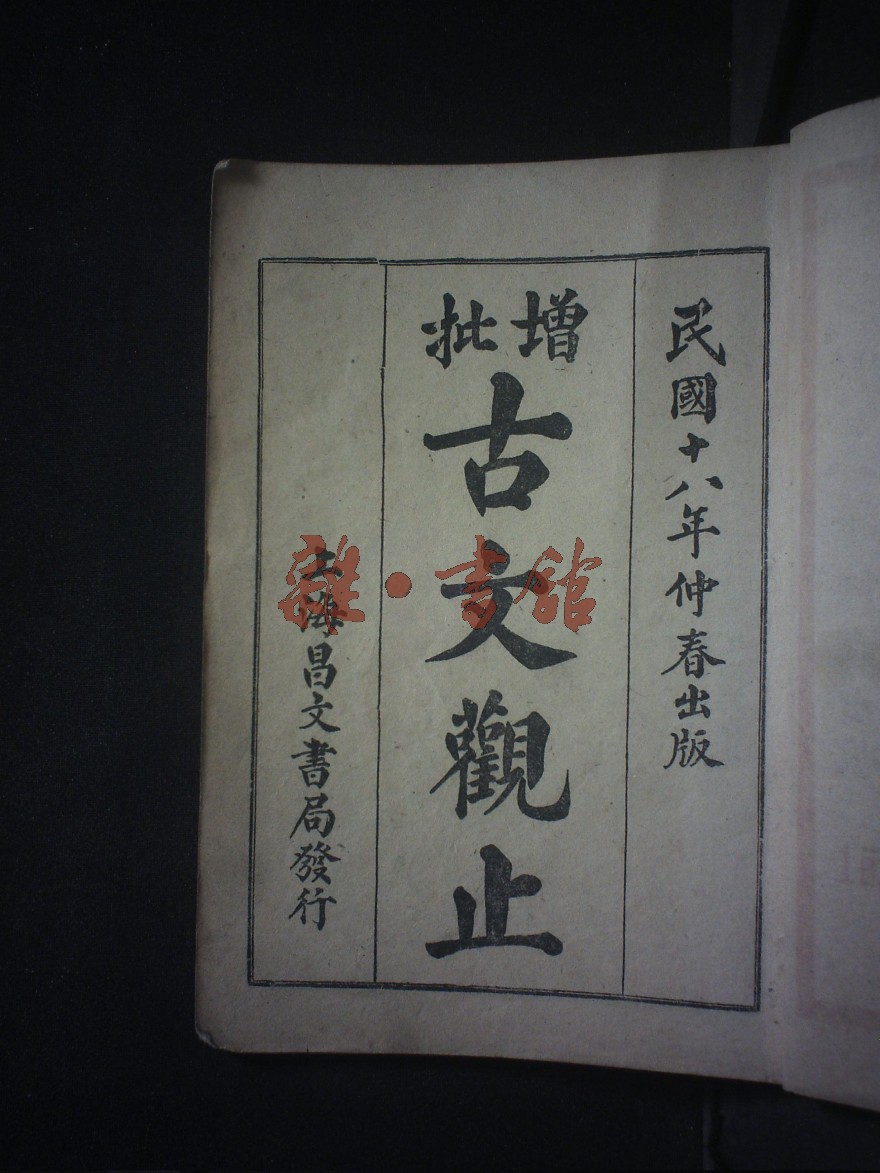 民國十八年仲春出版
增批
古文觀止
上海昌文書局發行
雜·書館